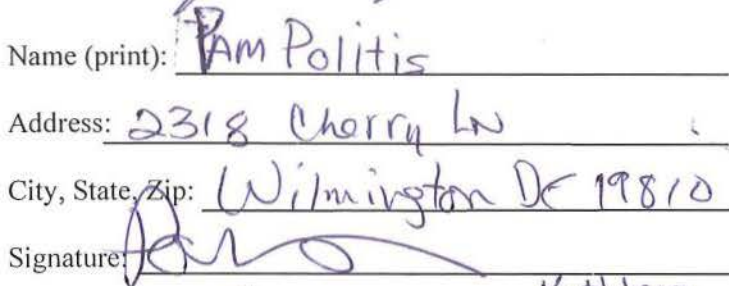 Name (print): Pam Politis
Address: 2318 Cherry LN
City, State, Zip: Wilmington DE 19810
Signature: